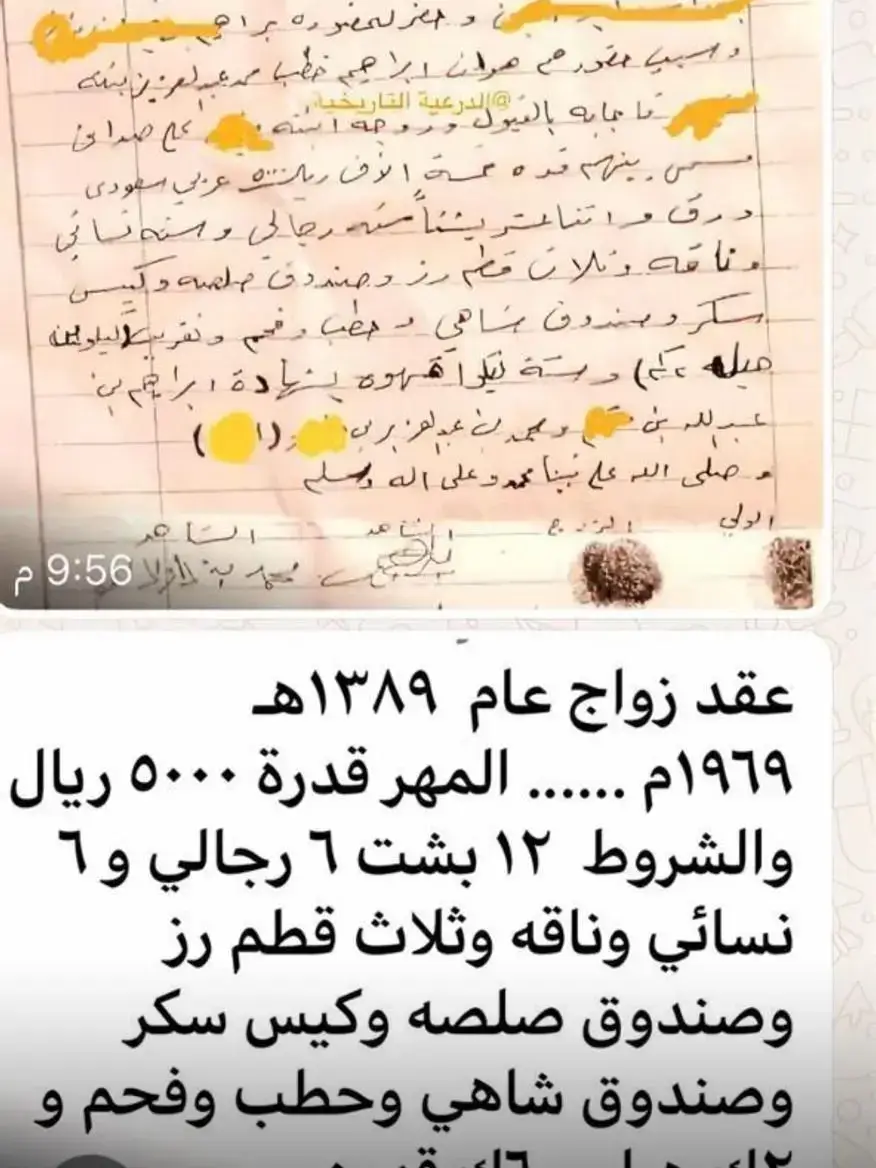 و حضر لحضوره براهيم بن
وسبب حضورهم هوان ابراهيم خطب محمد عبدالعزيز بنته
@الدرعية التاريخية
فاجابه بالقبول وزوجه ابنته على صداق
مسمى بينهم قده خمسة الاف ريال ٥٠٠٠ عربي سعودي
ورق و اثنا عشر بشتاً سته رجالي وسته نسائي
وناقه وثلاث قطم رز وصندوق صلصه وكيس
سكر وصندوق شاهي وحطب وفحم
هيل وستة كيلوا قهوه بشهادة ابراهيم بن
عبدالله بن و محمد بن عبدالعزيز بن
وصلى الله على نبينا محمد وعلى اله وسلم
الولي الزوج الشاهد الشاهد
9:56 م
عقد زواج عام ١٣٨٩هـ
١٩٦٩م ...... المهر قدرة ٥٠٠٠ ريال
والشروط ١٢ بشت ٦ رجالي و ٦
نسائي وناقه وثلاث قطم رز
وصندوق صلصه وكيس سكر
وصندوق شاهي وحطب وفحم و